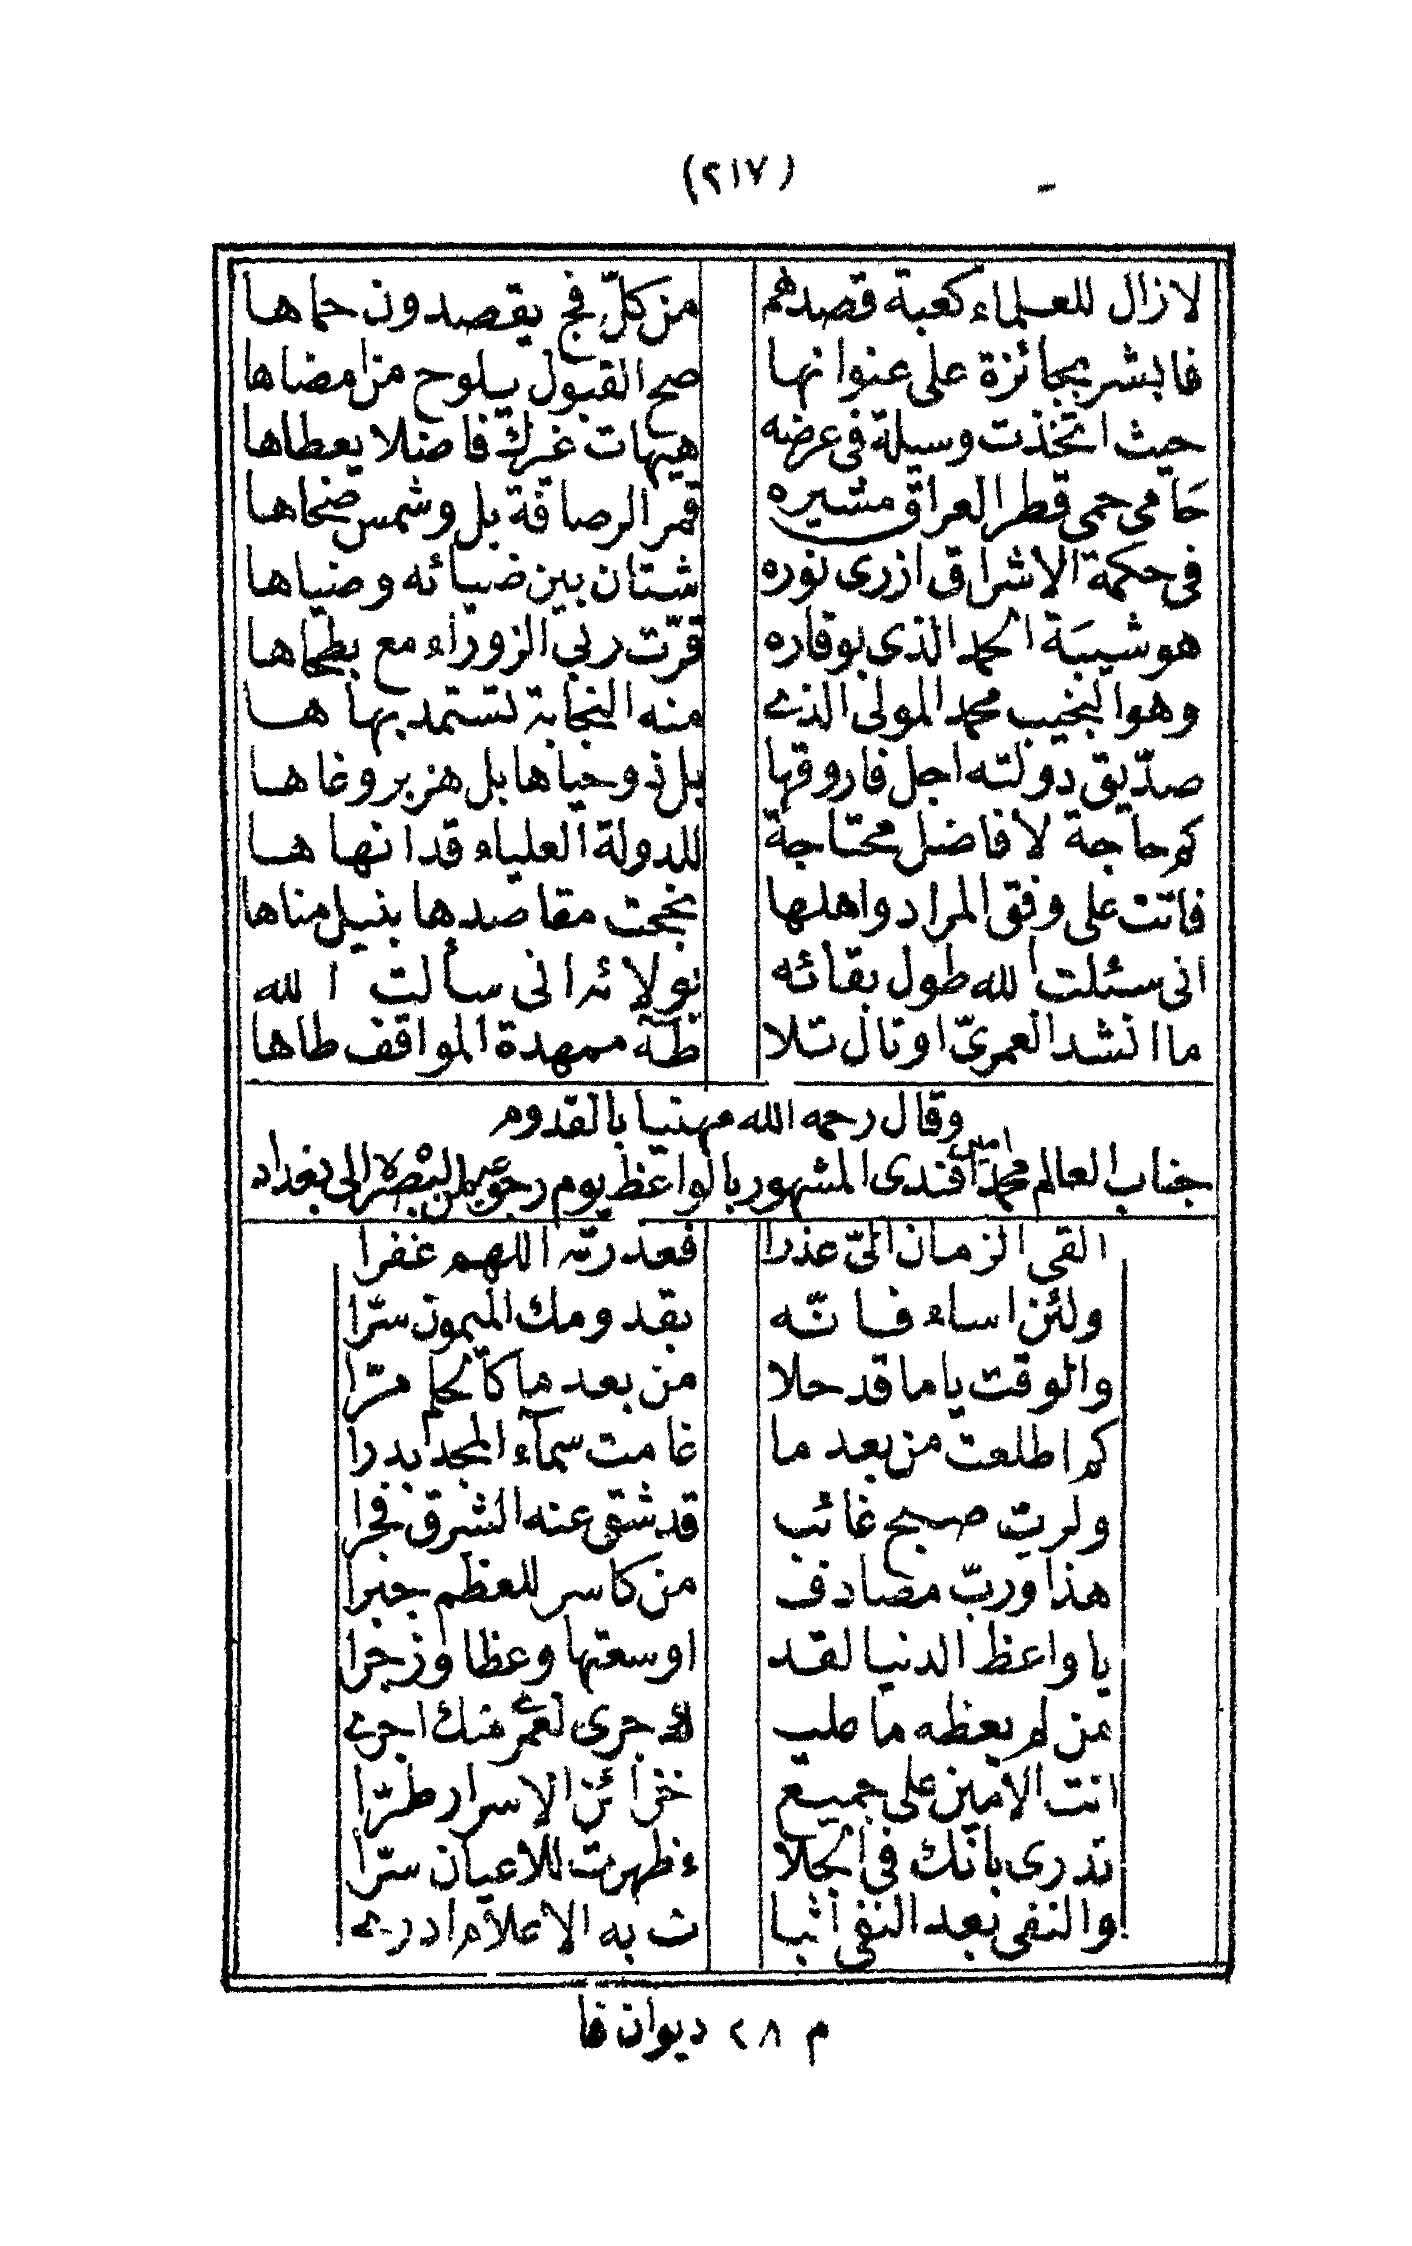 (٢١٧)
لازال للعلماء كعبة قصدهم من كلّ فج يقصدون حماها
فابشر بجائزة على عنوانها صح القبول يلوح من امضاها
حيث اتخذت وسيلة فى عرضه هيهات غيرك فاضلا يعطاها
حامى حمى قطر العراق مشيره قمر الرصافة بل وشمس ضحاها
فى حكمة الاشراق ازرى نوره شتان بين ضيائه وضياها
هو شيبة الحمد الذى بوقاره قرّت ربى الزوراء مع بطحاها
وهو النجيب محمد المولى الذى منه النجابة تستمد بهاها
صدّيق دولته اجل فاروقها بل ذو حياها بل هزبر وغاها
كم حاجة لا فاضل محتاجة للدولة العلياء قد انهاها
فاتت على وفق المراد واهلها نجحت مقاصدها بنيل مناها
انى سئلت الله طول بقائه نولائه انى سألت الله
ما انشد العمرىّ او تال تلا طه ممهدة المواقف طاها
وقال رحمه الله مهنيا بالقدوم
جناب العالم محمد امين افندى المشهور بالواعظ يوم رجوعه من البصرة الى بغداد
القى الزمان الىّ عذرا فعذرته اللهم غفرا
ولئن اساء فانّه بقدومك الميمون سرّا
والوقت ياما قد حلا من بعد ما كالحلم مرّا
كم اطلعت من بعد ما غامت سماء المجد بدرا
ولرب صبح غائب قد شق عنه الشرق فجرا
هذا وربّ مصادف من كاسر للعظم جبرا
يا واعظ الدنيا لقد اوسعتها وعظا وزجرا
من لم يعظه ما طلب لاحرى لعمرى منك اجرى
انت الامين على جميع خزائن الاسرار طرّا
تدرى بانك فى الجلا ء ظهرت للاعيان سرّا
والنفى بعد النفى اثبا ت به الاعلام ادرى
م ٢٨ ديوان فا